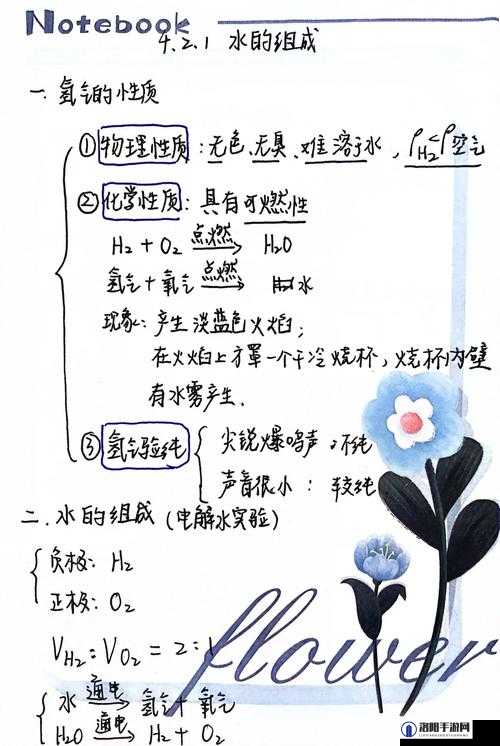 Notebook
4.2.1 水的组成
一. 氢气的性质
① 物理性质: 无色、无臭、难溶于水, ρH₂<ρ空气
② 化学性质: 具有可燃性
H₂ + O₂ 点燃→ H₂O
氢气 + 氧气 点燃→ 水
现象: 产生淡蓝色火焰;
在火焰上方罩一个干冷烧杯, 烧杯内壁
有水雾产生.
③ 氢气验纯 { 尖锐爆鸣声: 不纯
声音很小: 较纯
二. 水的组成 (电解水实验)
负极: H₂
正极: O₂
VH₂:VO₂ = 2:1
flower
水 通电→ 氢气 + 氧气
H₂O 通电→ H₂ + O₂
洛阳手游网